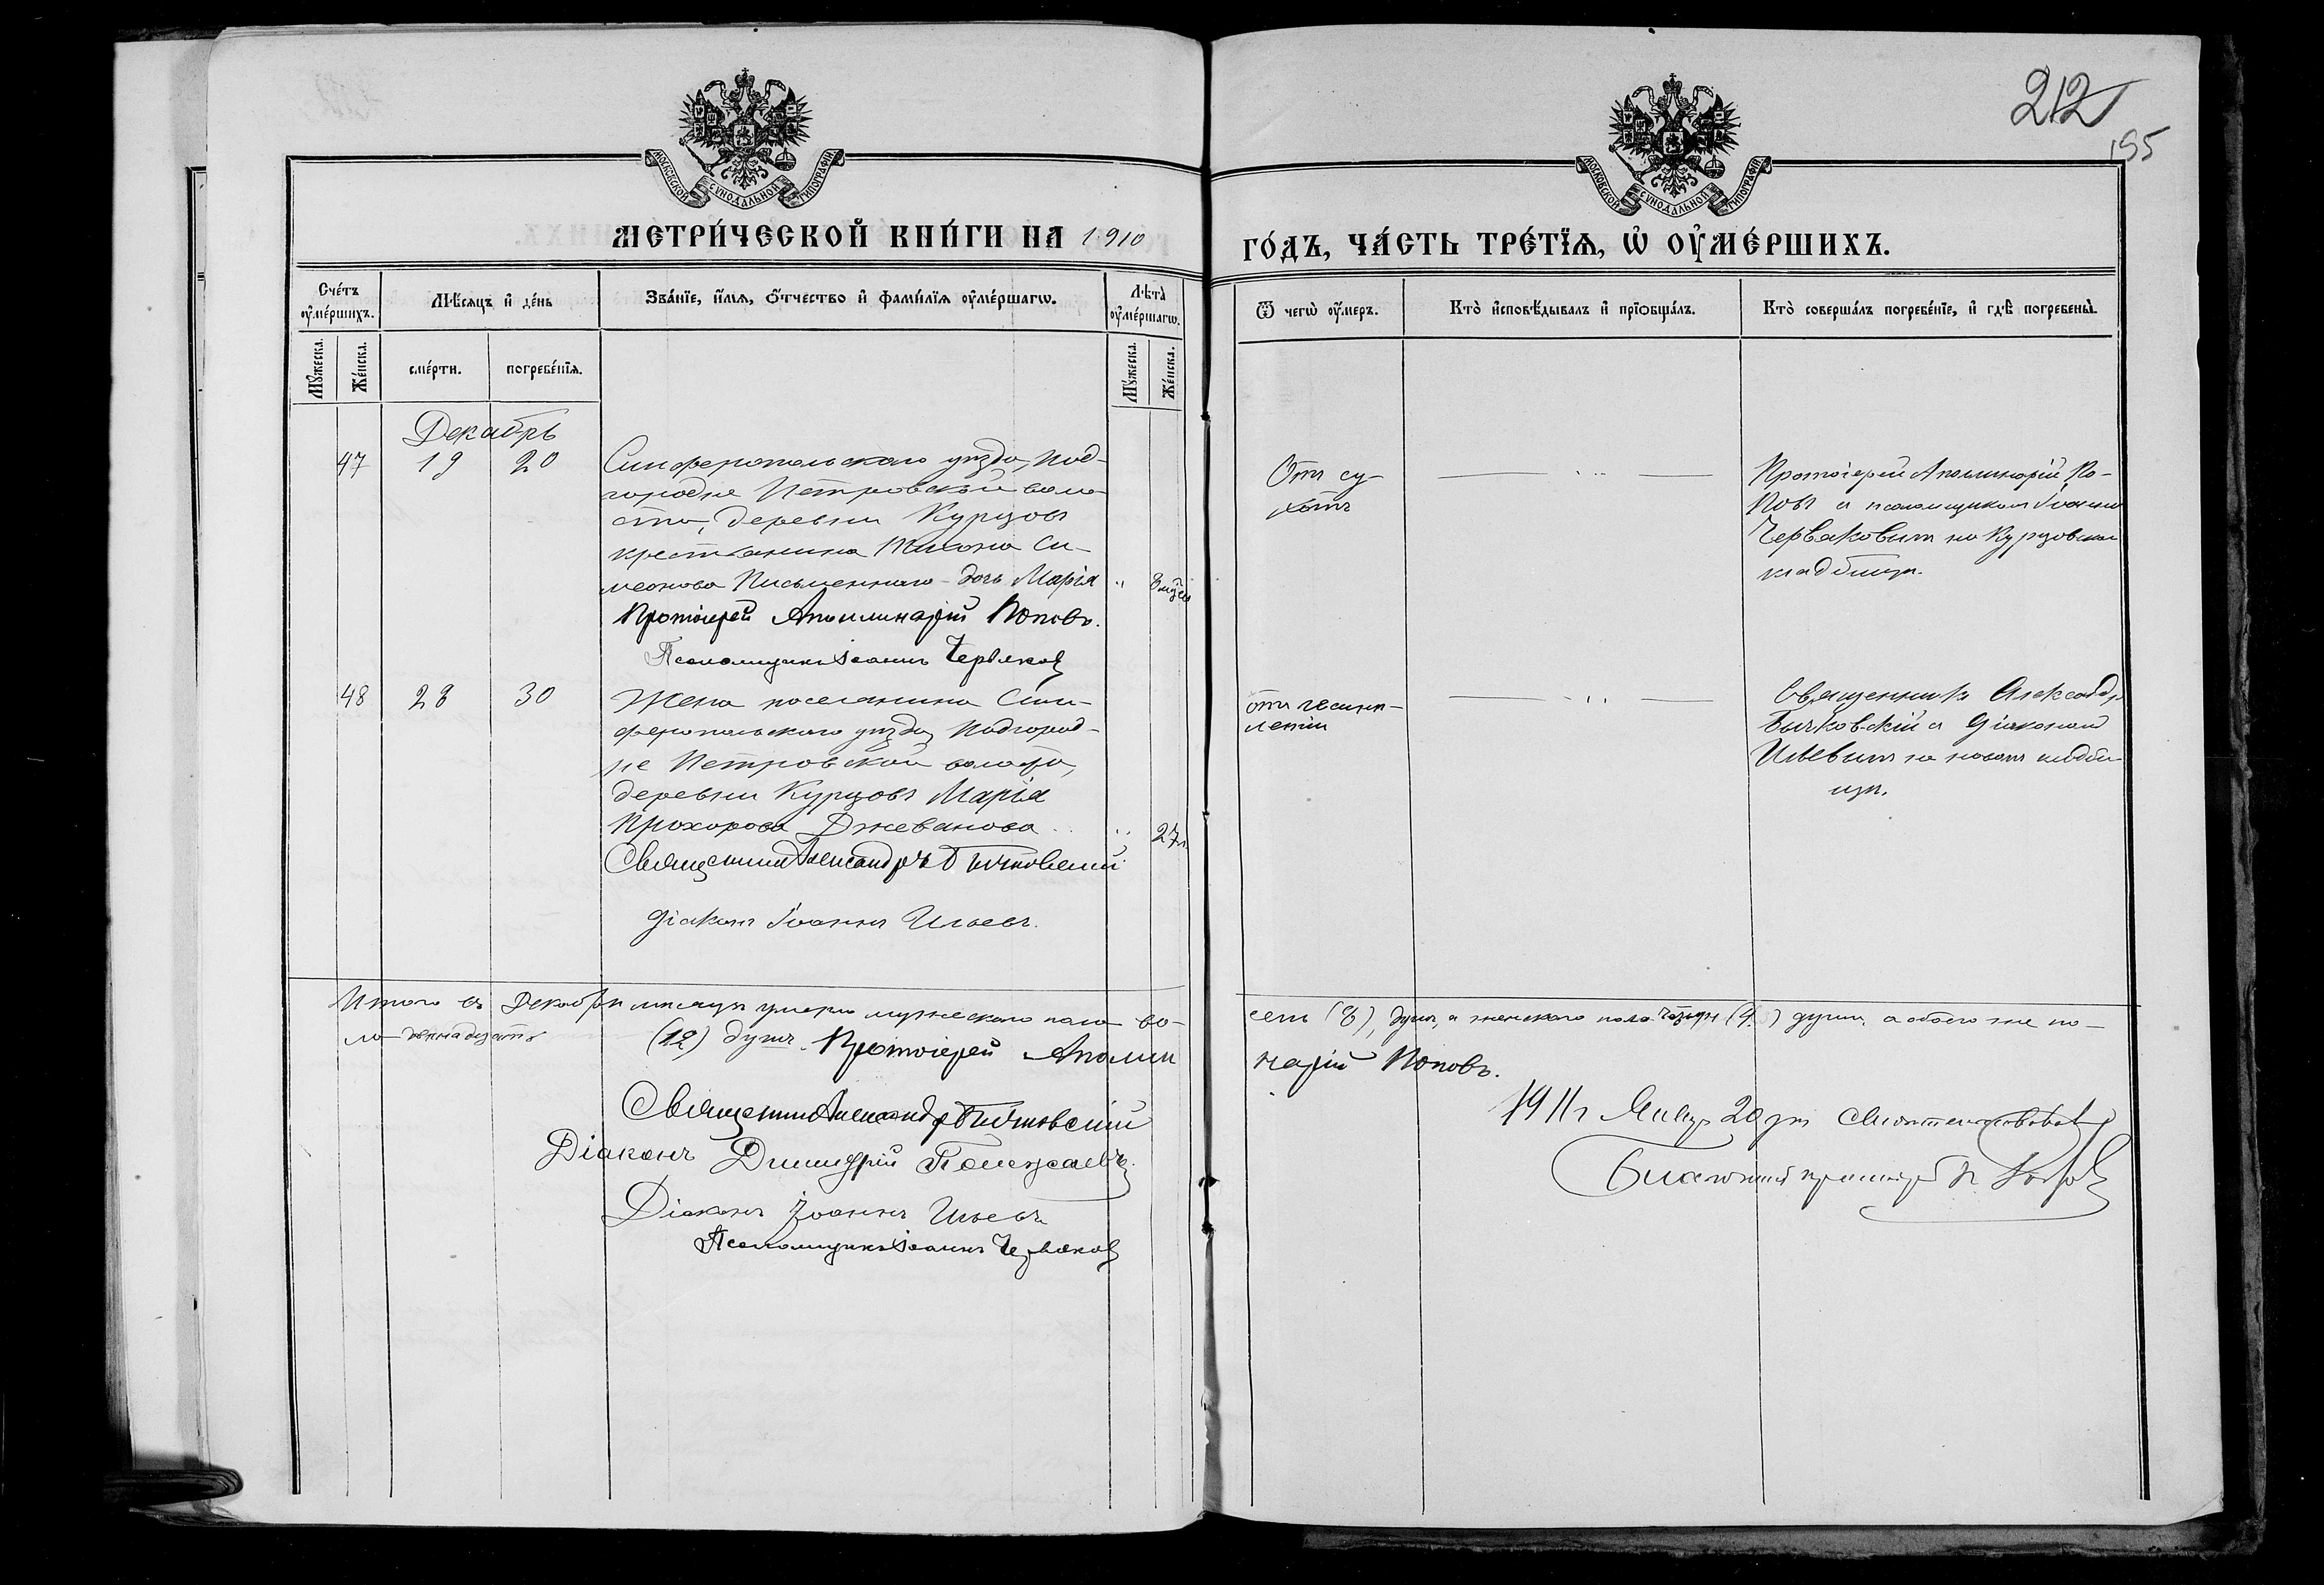 212
195
МОСКОВСКОЙ СѴНОДАЛЬНОЙ ТИПОГРАФІИ
МОСКОВСКОЙ СѴНОДАЛЬНОЙ ТИПОГРАФІИ
МЕТРИ́ЧЕСКОЙ КНИ́ГИ НА 1910
ГО́ДЪ, ЧА́СТЬ ТРЕ́ТІѦ, Ѡ҆ ОУ҆МЕ́РШИХЪ.
Сче́тъ оу҆ме́ршихъ.
Мѣ́сяцъ и҆ де́нь
Зва́нїе, и҆́мя, ѻ҆́тчество и҆ фами́лїя оу҆ме́ршагѡ.
Лѣта̀ оу҆ме́ршагѡ.
Мꙋ́жеска.
Же́нска.
сме́рти.
погребе́нїя.
Мꙋ́жеска.
Же́нска.
Ѿ чегѡ̀ оу҆́меръ.
Кто̀ и҆сповѣ́дывалъ и҆ прїѻбща́лъ.
Кто̀ соверша́лъ погребе́нїе, и҆ гдѣ̀ погребены̀.
Декабрь
47 19 20
Симферопольскаго уѣзда, Под-
городне Петровской воло-
сти, деревни Курцовъ
крестьянина Тихона Си-
меонова Письменнаго - дочь Марія
Протоіерей Аполлинарій Поповъ.
Псаломщикъ Іоаннъ Червяковъ
Отъ су-
хотъ
Протоіерей Аполлинарій По-
повъ съ псаломщикомъ Іоанномъ
Червяковымъ на Курцовскомъ
кладбищѣ.
48 28 30
Жена поселянина Сим-
феропольскаго уѣзда, Подгород-
не Петровской волости,
деревни Курцовъ Марія
Прохорова Джеванова
27 л.
Священникъ Александръ Бычковскій
Діаконъ Іоаннъ Ильевъ.
Священникъ Александръ
Бычковскій съ діакономъ
Ильевымъ на новомъ кладби-
щѣ.
Итого въ Декабрѣ мѣсяцѣ умерло мужескаго пола во-
семь (8), душъ, а женскаго пола четыре (4) души, а обоего же по-
ла двѣнадцать (12) душъ. Протоіерей Аполли
нарій Поповъ.
Священникъ Александръ Бычковскій
Діаконъ Димитрій
Діаконъ Іоаннъ Ильевъ
Псаломщикъ Іоаннъ Червяковъ
1911 г. Янв. 20 дня
Благочинный протоіерей